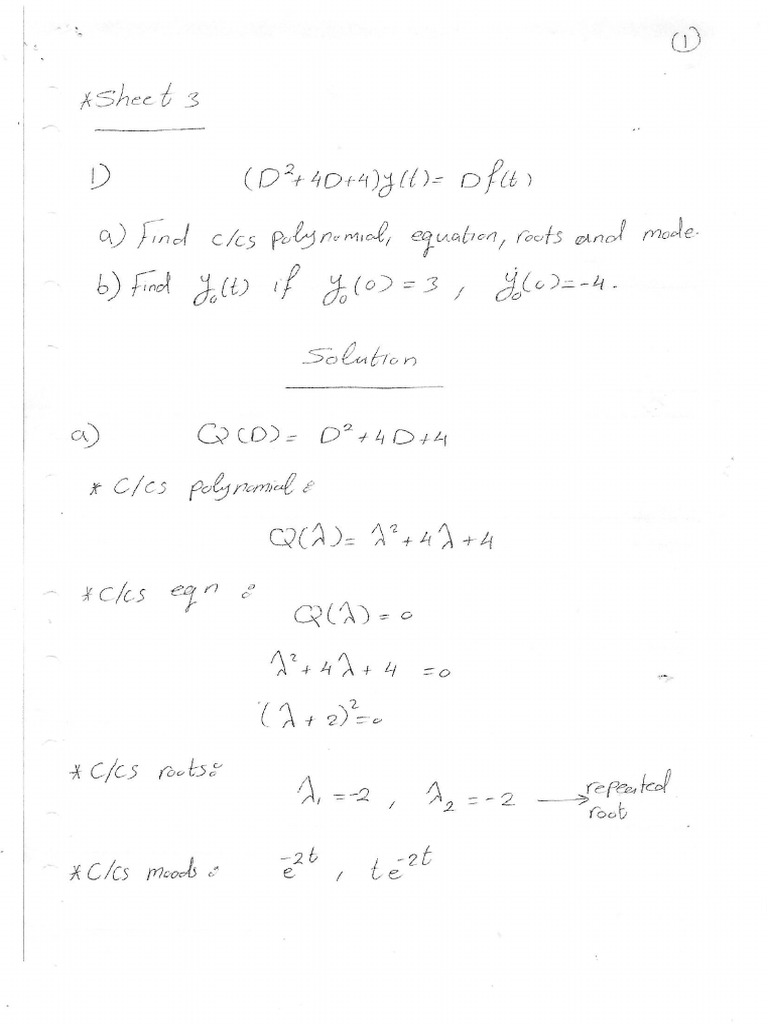 (1)
*Sheet 3
1) (D²+4D+4)y(t)= Df(t)
a) Find c/cs polynomial, equation, roots and mode.
b) Find y₀(t) if y₀(0)=3 , ẏ₀(0)=-4.
Solution
a) Q(D)= D²+4D+4
* C/cs polynomial:
Q(λ)= λ²+4λ+4
*C/cs eqn :
Q(λ)=0
λ²+4λ+4 =0
(λ+2)²=0
* C/cs roots:
λ₁=-2 , λ₂=-2 → repeated root
*C/cs moods: e⁻²ᵗ , te⁻²ᵗ